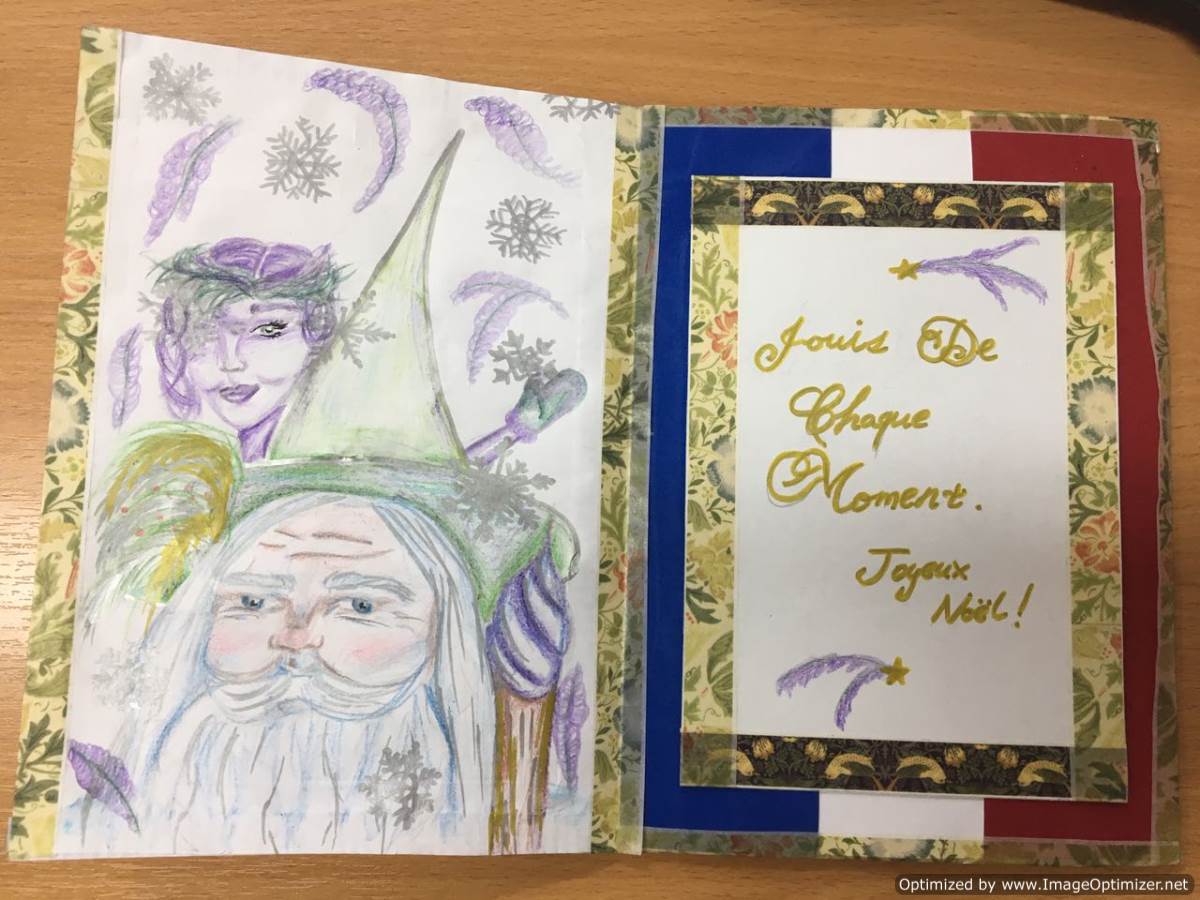 Jouis De
Chaque
Moment.
Joyeux
Noël!
Optimized by www.ImageOptimizer.net